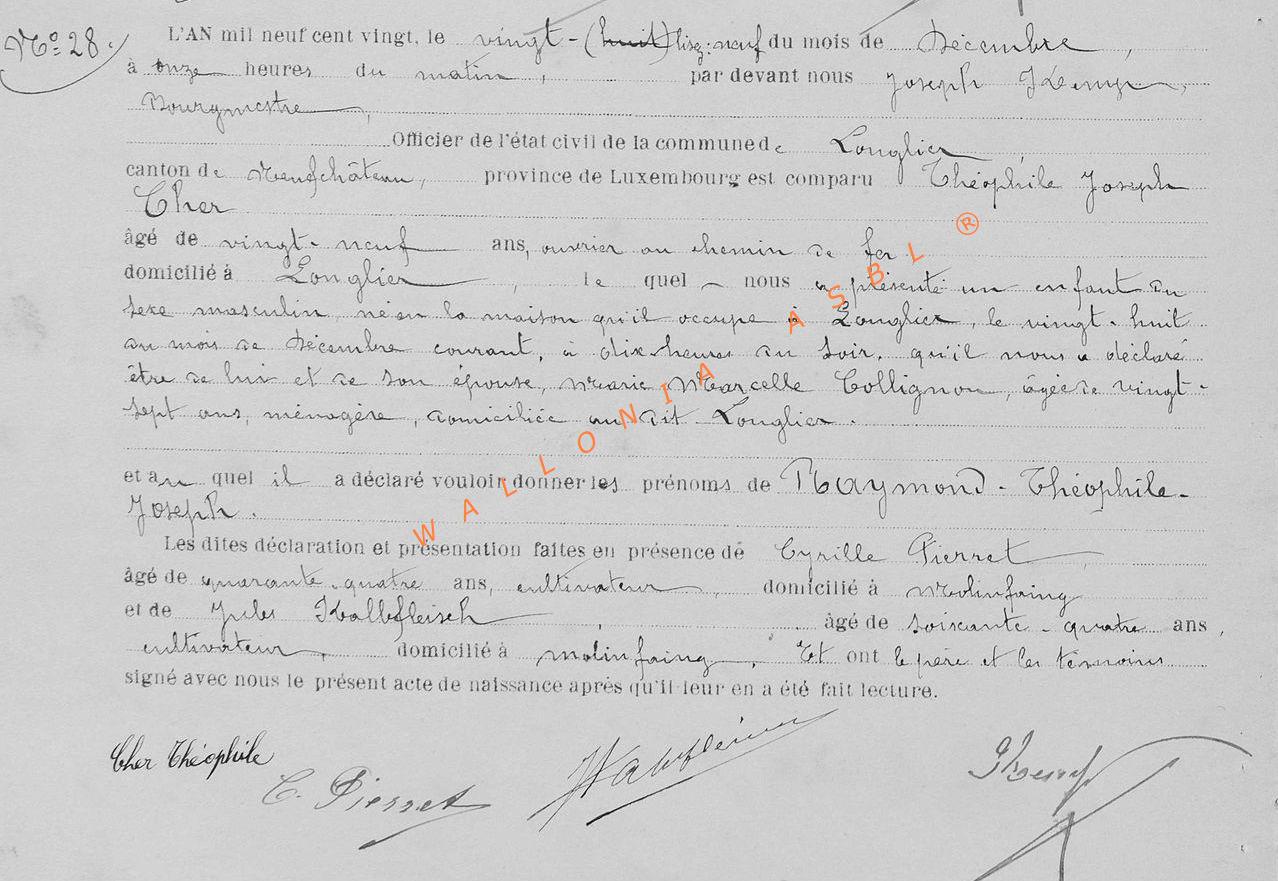 Nº 28.
L'AN mil neuf cent vingt, le vingt-(huit) lisez: neuf du mois de Décembre,
à onze heures du matin, par devant nous Joseph
Bourgmestre,
Officier de l'état civil de la commune de Longlier,
canton de Neufchâteau, province de Luxembourg est comparu Théophile Joseph
Cher
âgé de vingt-neuf ans, ouvrier au chemin de fer
domicilié à Longlier, le quel nous a présenté un enfant du
sexe masculin, né en la maison qu'il occupe à Longlier, le vingt-huit
du mois de Décembre courant, à dix heures du soir, qu'il nous a déclaré
être de lui et de son épouse, Marie Marcelle Collignon, âgée de vingt-
sept ans, ménagère, domiciliée au dit Longlier.
et au quel il a déclaré vouloir donner les prénoms de Raymond-Théophile-
Joseph.
Les dites déclaration et présentation faites en présence de Cyrille Pierret
âgé de quarante-quatre ans, cultivateur, domicilié à Molinfaing
et de Jules Kalbfleisch, âgé de soixante-quatre ans,
cultivateur, domicilié à Molinfaing, Et ont le père et les témoins
signé avec nous le présent acte de naissance après qu'il leur en a été fait lecture.
Cher Théophile
C. Pierret
WALLONIA ASBL ®